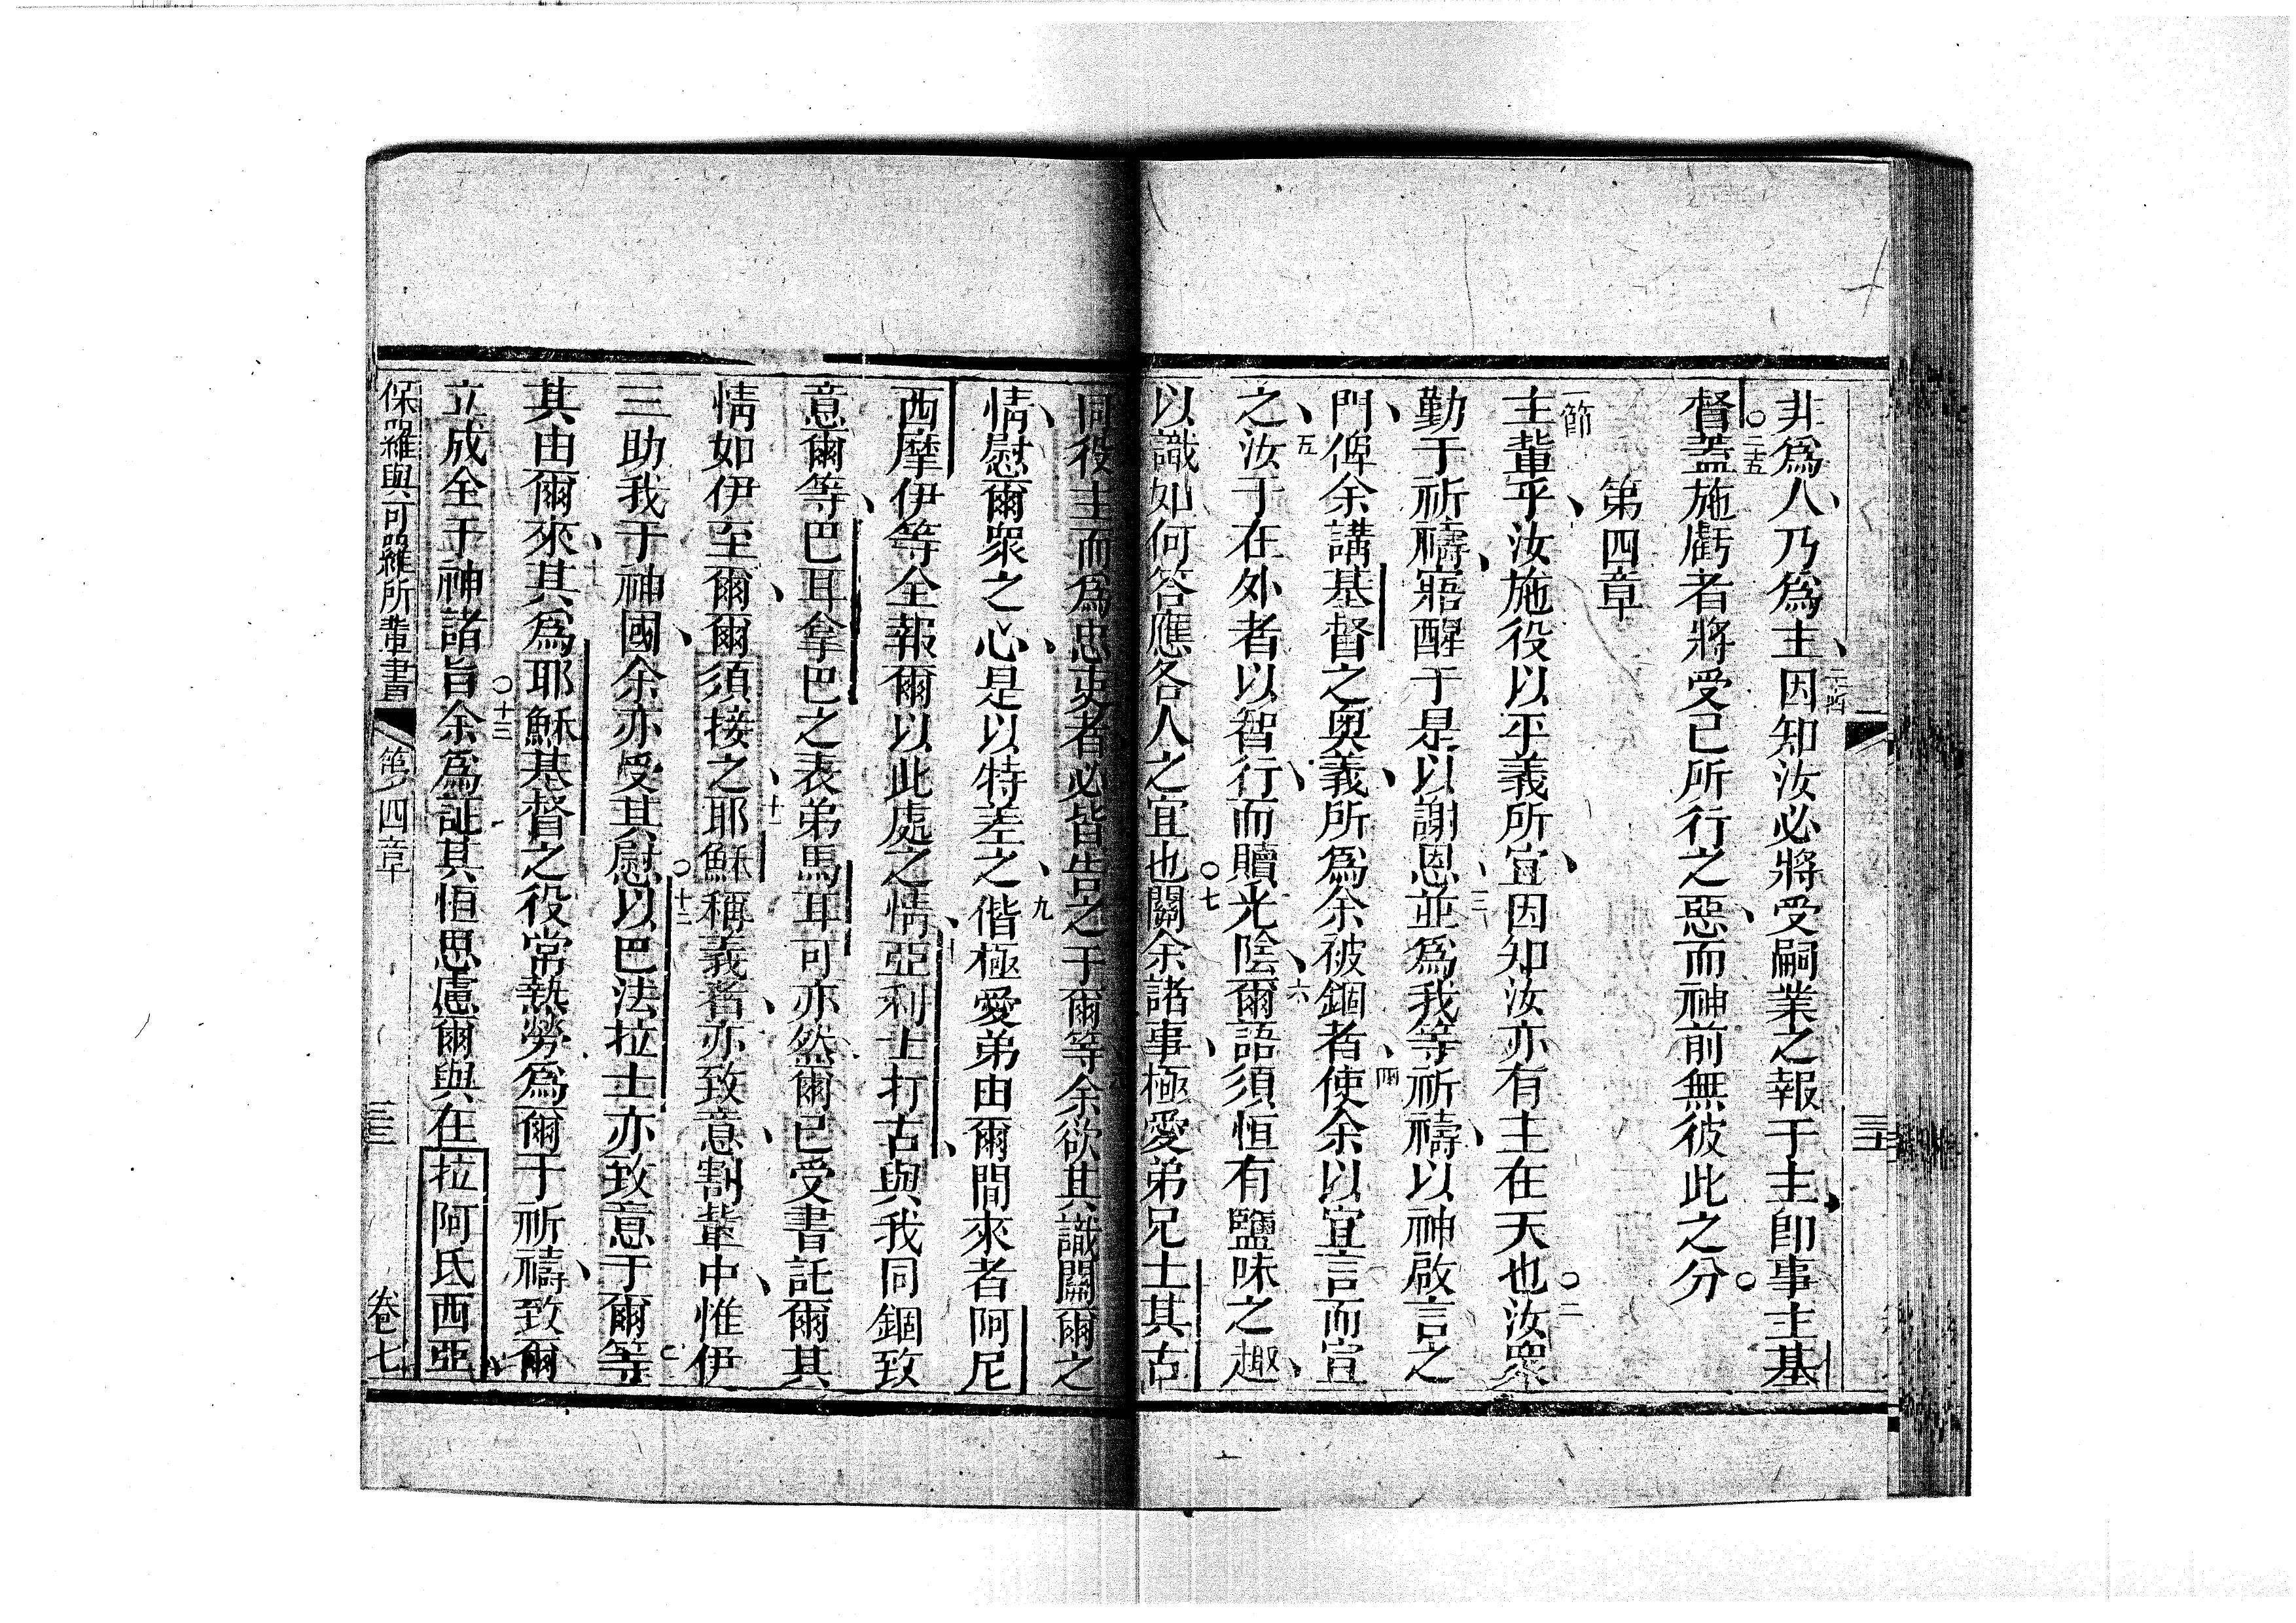 非爲人乃爲主二十四因知汝必將受嗣業之報于主卽事主基
督○二十五蓋施虧者將受已所行之惡而神前無彼此之分○
第四章
一節主輩乎汝施役以平義所宜因知汝亦有主在天也○二汝衆
勤于祈禱寤醒于是以謝恩三並爲我等祈禱以神啟言之
門俾余講基督之奧義所爲余被錮者四使余以宜言而宣
之五汝于在外者以智行而贖光陰六爾語須恒有鹽味之趣
以識如何答應各人之宜也○七關余諸事極愛弟兄士其古
同役主而爲忠吏者必皆告之于爾等八余欲其識關爾之
情慰爾衆之心是以特差之九偕極愛弟由爾間來者阿尼
西摩伊等全報爾以此處之情十亞利士打古與我同錮致
意爾等巴耳拿巴之表弟馬耳可亦然爾已受書託爾其
情如伊至爾爾須接之十一耶穌稱義者亦致意割輩中惟伊
三助我于神國余亦受其慰○十二以巴法拉士亦致意于爾等
其由爾來其爲耶穌基督之役常熱勞爲爾于祈禱致爾
立成全于神諸旨○十三余爲証其恒思慮爾與在拉阿氏西亞
保羅與可羅所輩書 第四章 三三 卷七